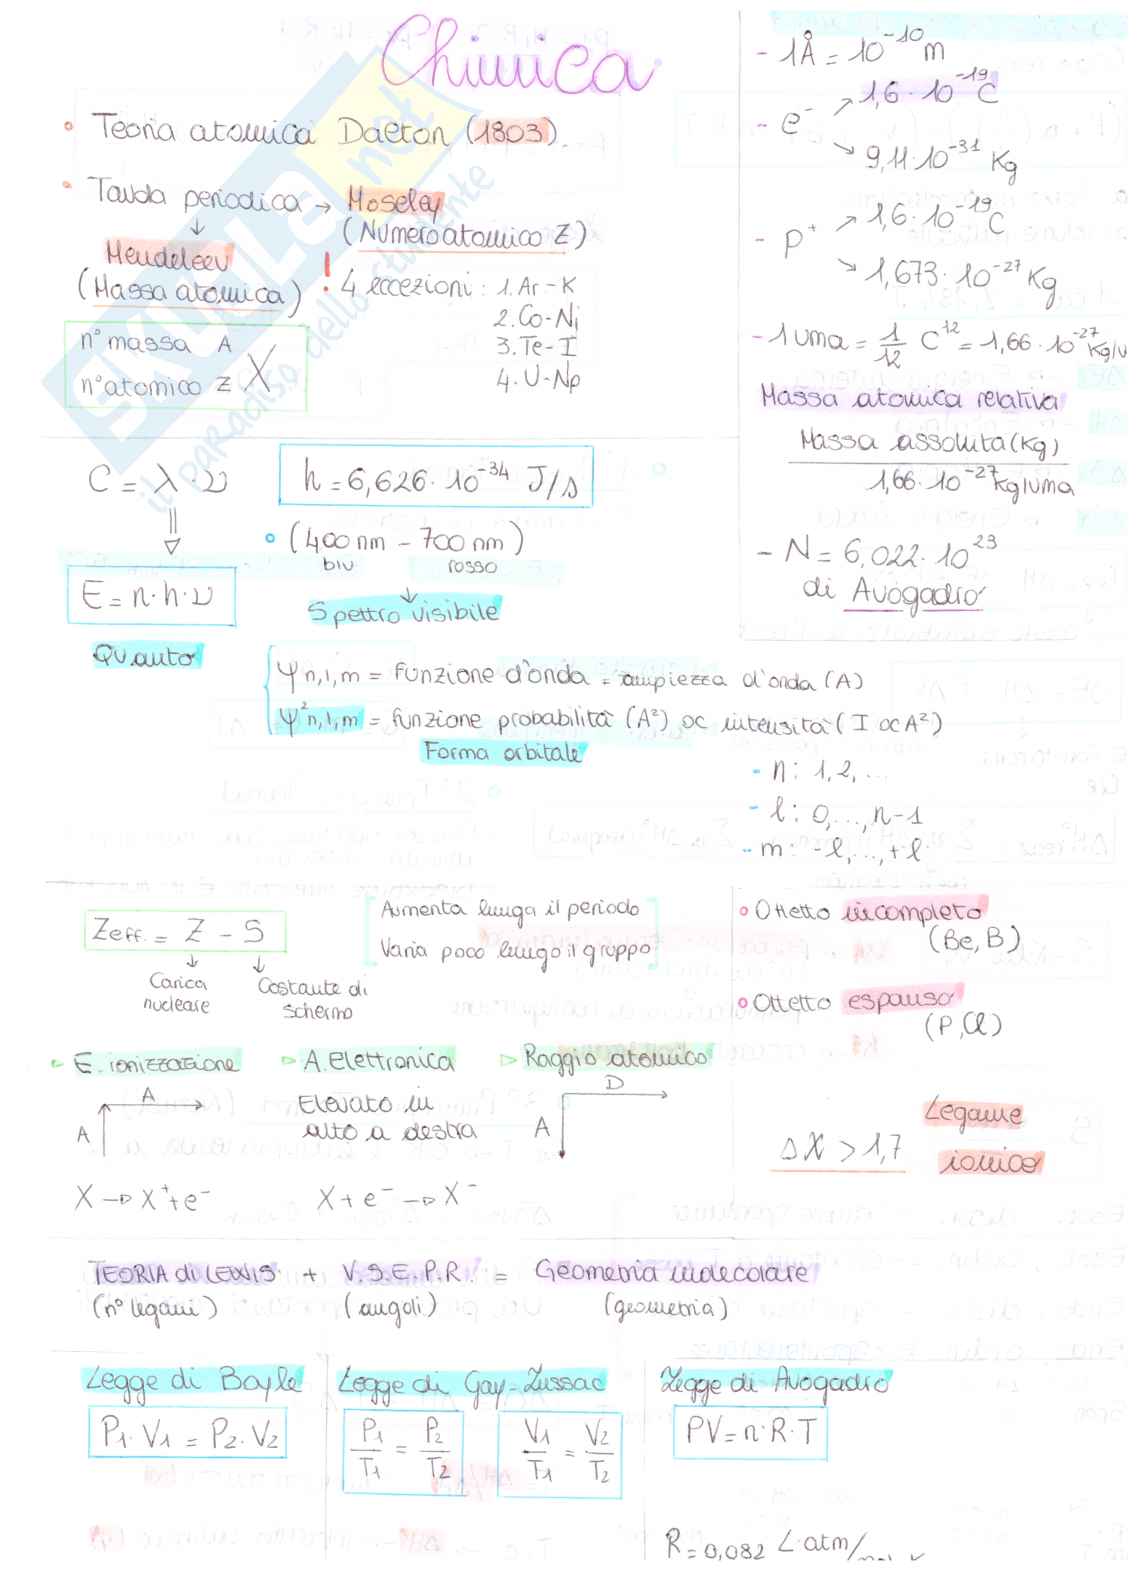 Chimica
• Teoria atomica Dalton (1803)
• Tavola periodica → Moseley
(Numero atomico Z)
↓
Mendeleev
(Massa atomica)
! 4 eccezioni: 1. Ar-K
2. Co-Ni
3. Te-I
4. U-Np
n° massa A
n° atomico Z X
- 1Å = 10⁻¹⁰ m
- e⁻ ↗ 1,6·10⁻¹⁹ C
↘ 9,11·10⁻³¹ Kg
- p⁺ ↗ 1,6·10⁻¹⁹ C
↘ 1,673·10⁻²⁷ Kg
- 1 uma = 1/12 C¹² = 1,66·10⁻²⁷ Kg/u
Massa atomica relativa
Massa assoluta (Kg)
1,66·10⁻²⁷ Kg/uma
- N = 6,022·10²³
di Avogadro
C = λ·ν
⇓
E = n·h·ν
Quanto
h = 6,626·10⁻³⁴ J/s
• (400 nm - 700 nm)
blu rosso
↓
Spettro visibile
ψ n,l,m = funzione d'onda = ampiezza d'onda (A)
ψ² n,l,m = funzione probabilità (A²) ∝ intensità (I ∝ A²)
Forma orbitale
- n: 1,2,...
- l: 0,...,n-1
- m: -l,...,+l
Zeff. = Z - S
↓ ↓
Carica nucleare
Costante di schermo
Aumenta lungo il periodo
Varia poco lungo il gruppo
• Ottetto incompleto
(Be, B)
• Ottetto espanso
(P, Cl)
▹ E. ionizzazione
A
A
X → X⁺ + e⁻
▹ A. Elettronica
Elevato in
alto a destra
X + e⁻ → X⁻
▹ Raggio atomico
D
A
ΔX > 1,7
Legame
ionico
TEORIA di LEWIS + V.S.E.P.R. = Geometria molecolare
(n° legami) (angoli) (geometria)
Legge di Boyle
P₁·V₁ = P₂·V₂
Legge di Gay-Lussac
P₁/T₁ = P₂/T₂
V₁/T₁ = V₂/T₂
Legge di Avogadro
PV = n·R·T
R = 0,082 L·atm/
SKUOLA.net
il paradiso dello studente